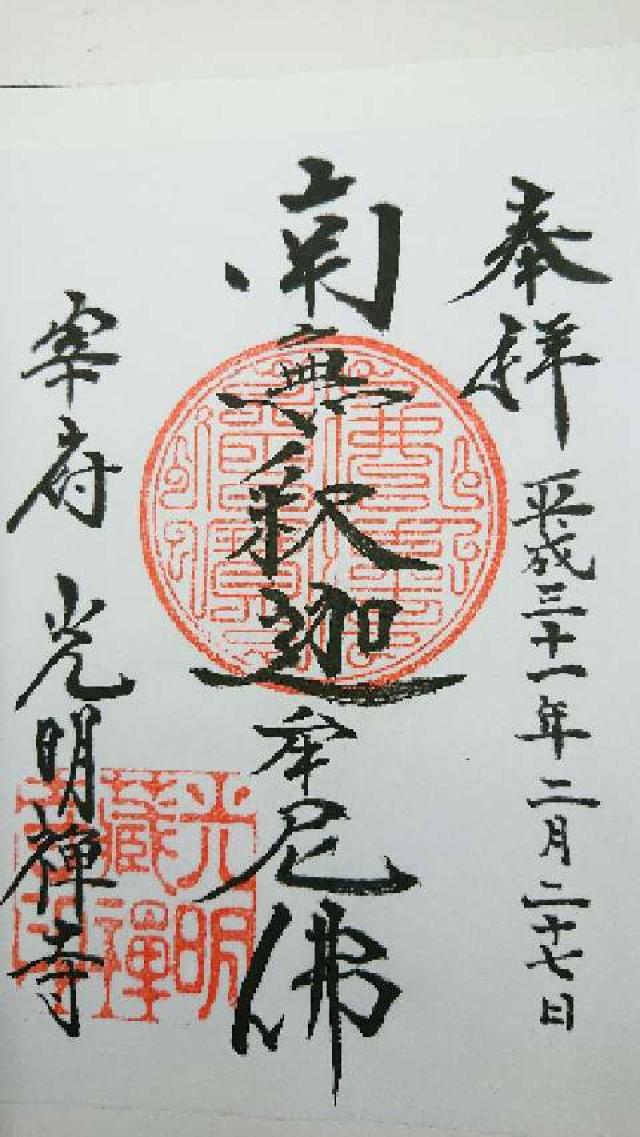 奉拝
平成三十一年二月二十七日
南無釈迦牟尼佛
宰府 光明禅寺
光明
蔵禅